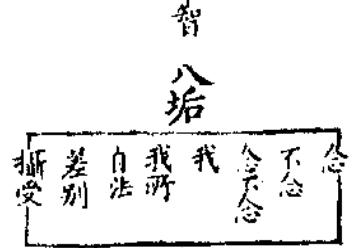 智
八垢
念
不念
念不念
我
我所
自法
差別
攝受